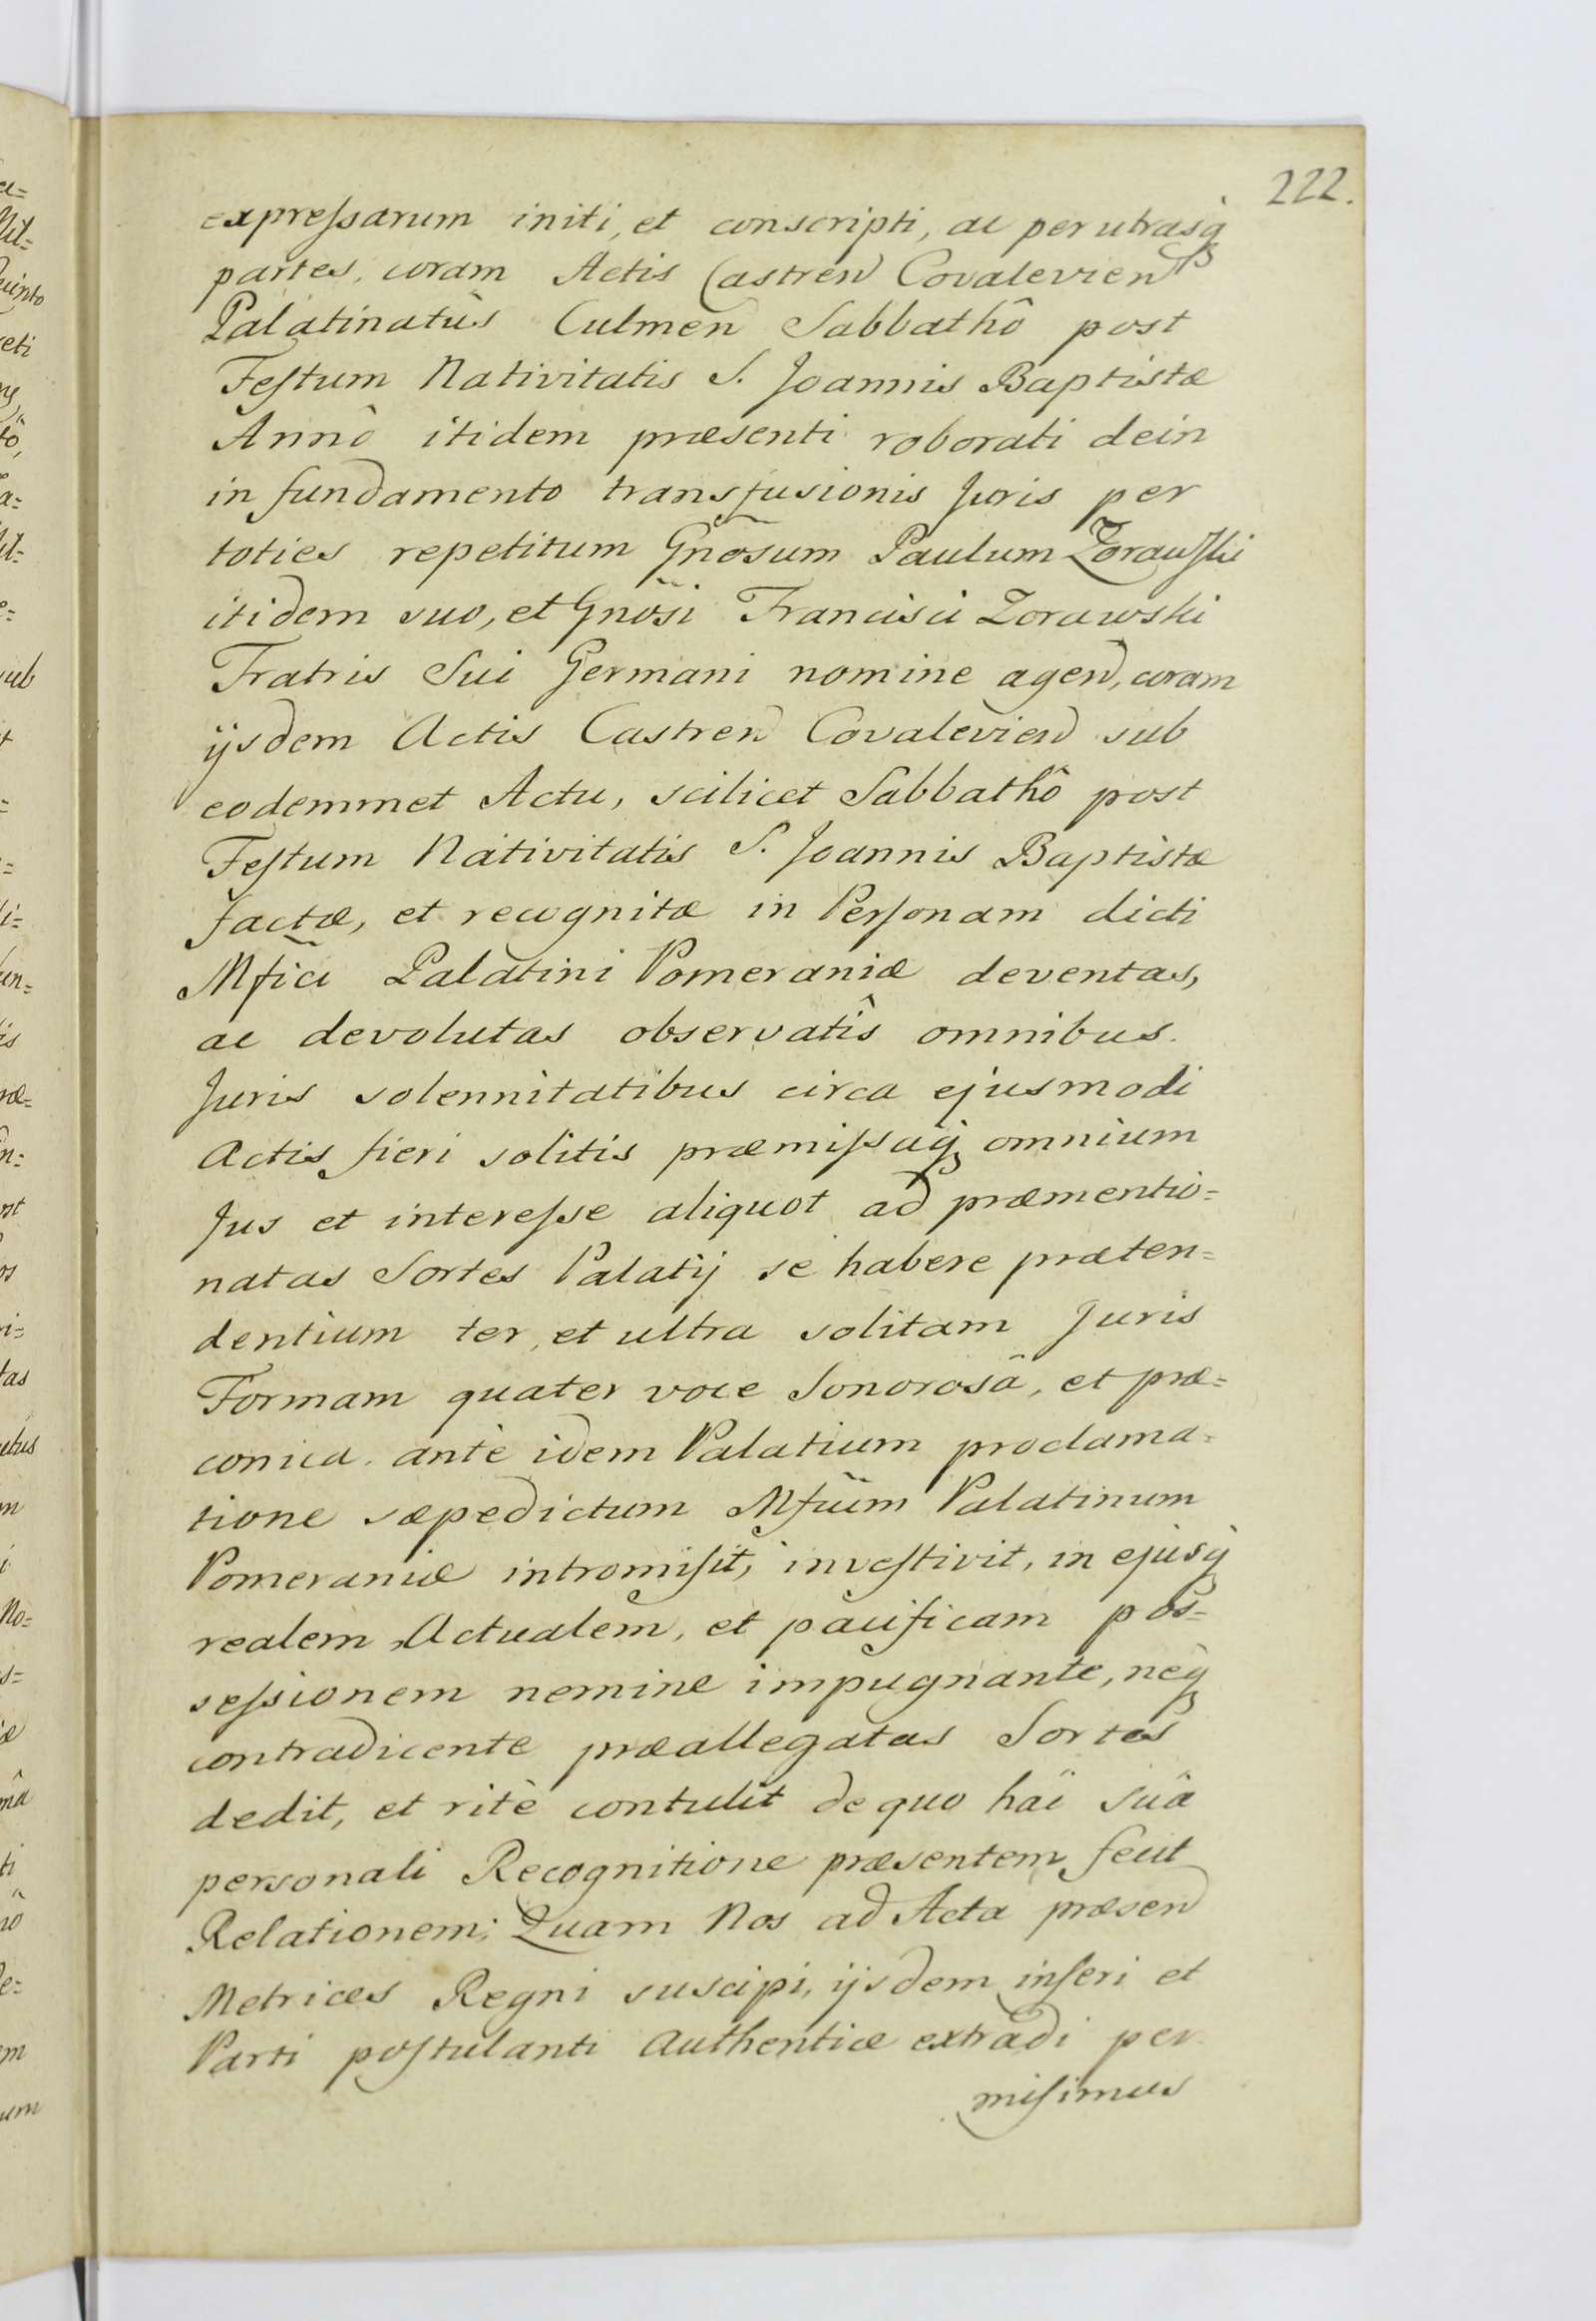 222.
expressarum initi, et conscripti, ac per utrasq
partes, coram Actis Castren Covalevien
Palatinatûs Culmen Sabbathô post
Festum Nativitatis S. Joannis Baptistæ
Annô itidem præsenti roborati dein
in fundamento transfusionis Juris per
toties repetitum Gnõsum Paulum Zorawski
itidem suo, et Gnõsi Francisci Zorawski
Fratris Sui Germani nomine agen, coram
ijsdem Actis Castren Covalevien sub
eodemmet Actu, scilicet Sabbathô post
Festum Nativitatis S. Joannis Baptistæ
factæ, et recognitæ in Personam dicti
Mfici Palatini Pomeraniæ deventas,
ac devolutas observatîs omnibus
Juris solennitatibus circa ejusmodi
Actis fieri solitis præmissaq omnium
Jus et interesse aliquot ad præmentio=
natas Sortes Palatij se habere præten=
dentium ter, et ultra solitam Juris
Formam quater voce Sonorosâ, et præ=
conica ante idem Palatium proclama=
tione sæpedictum Mfiĩm Palatinum
Pomeraniæ intromisit, investivit, in ejusq
realem, Actualem, et pacificam pos=
sessionem nemine impugnante, neq
contradicente præallegatas Sortes
dedit, et ritè contulit de quo hac suâ
personali Recognitione præsentem fecit
Relationem; Quam Nos ad Acta præsen
Metrices Regni suscipi, ijsdem inseri et
Parti postulanti Authenticæ extradi per
misimus